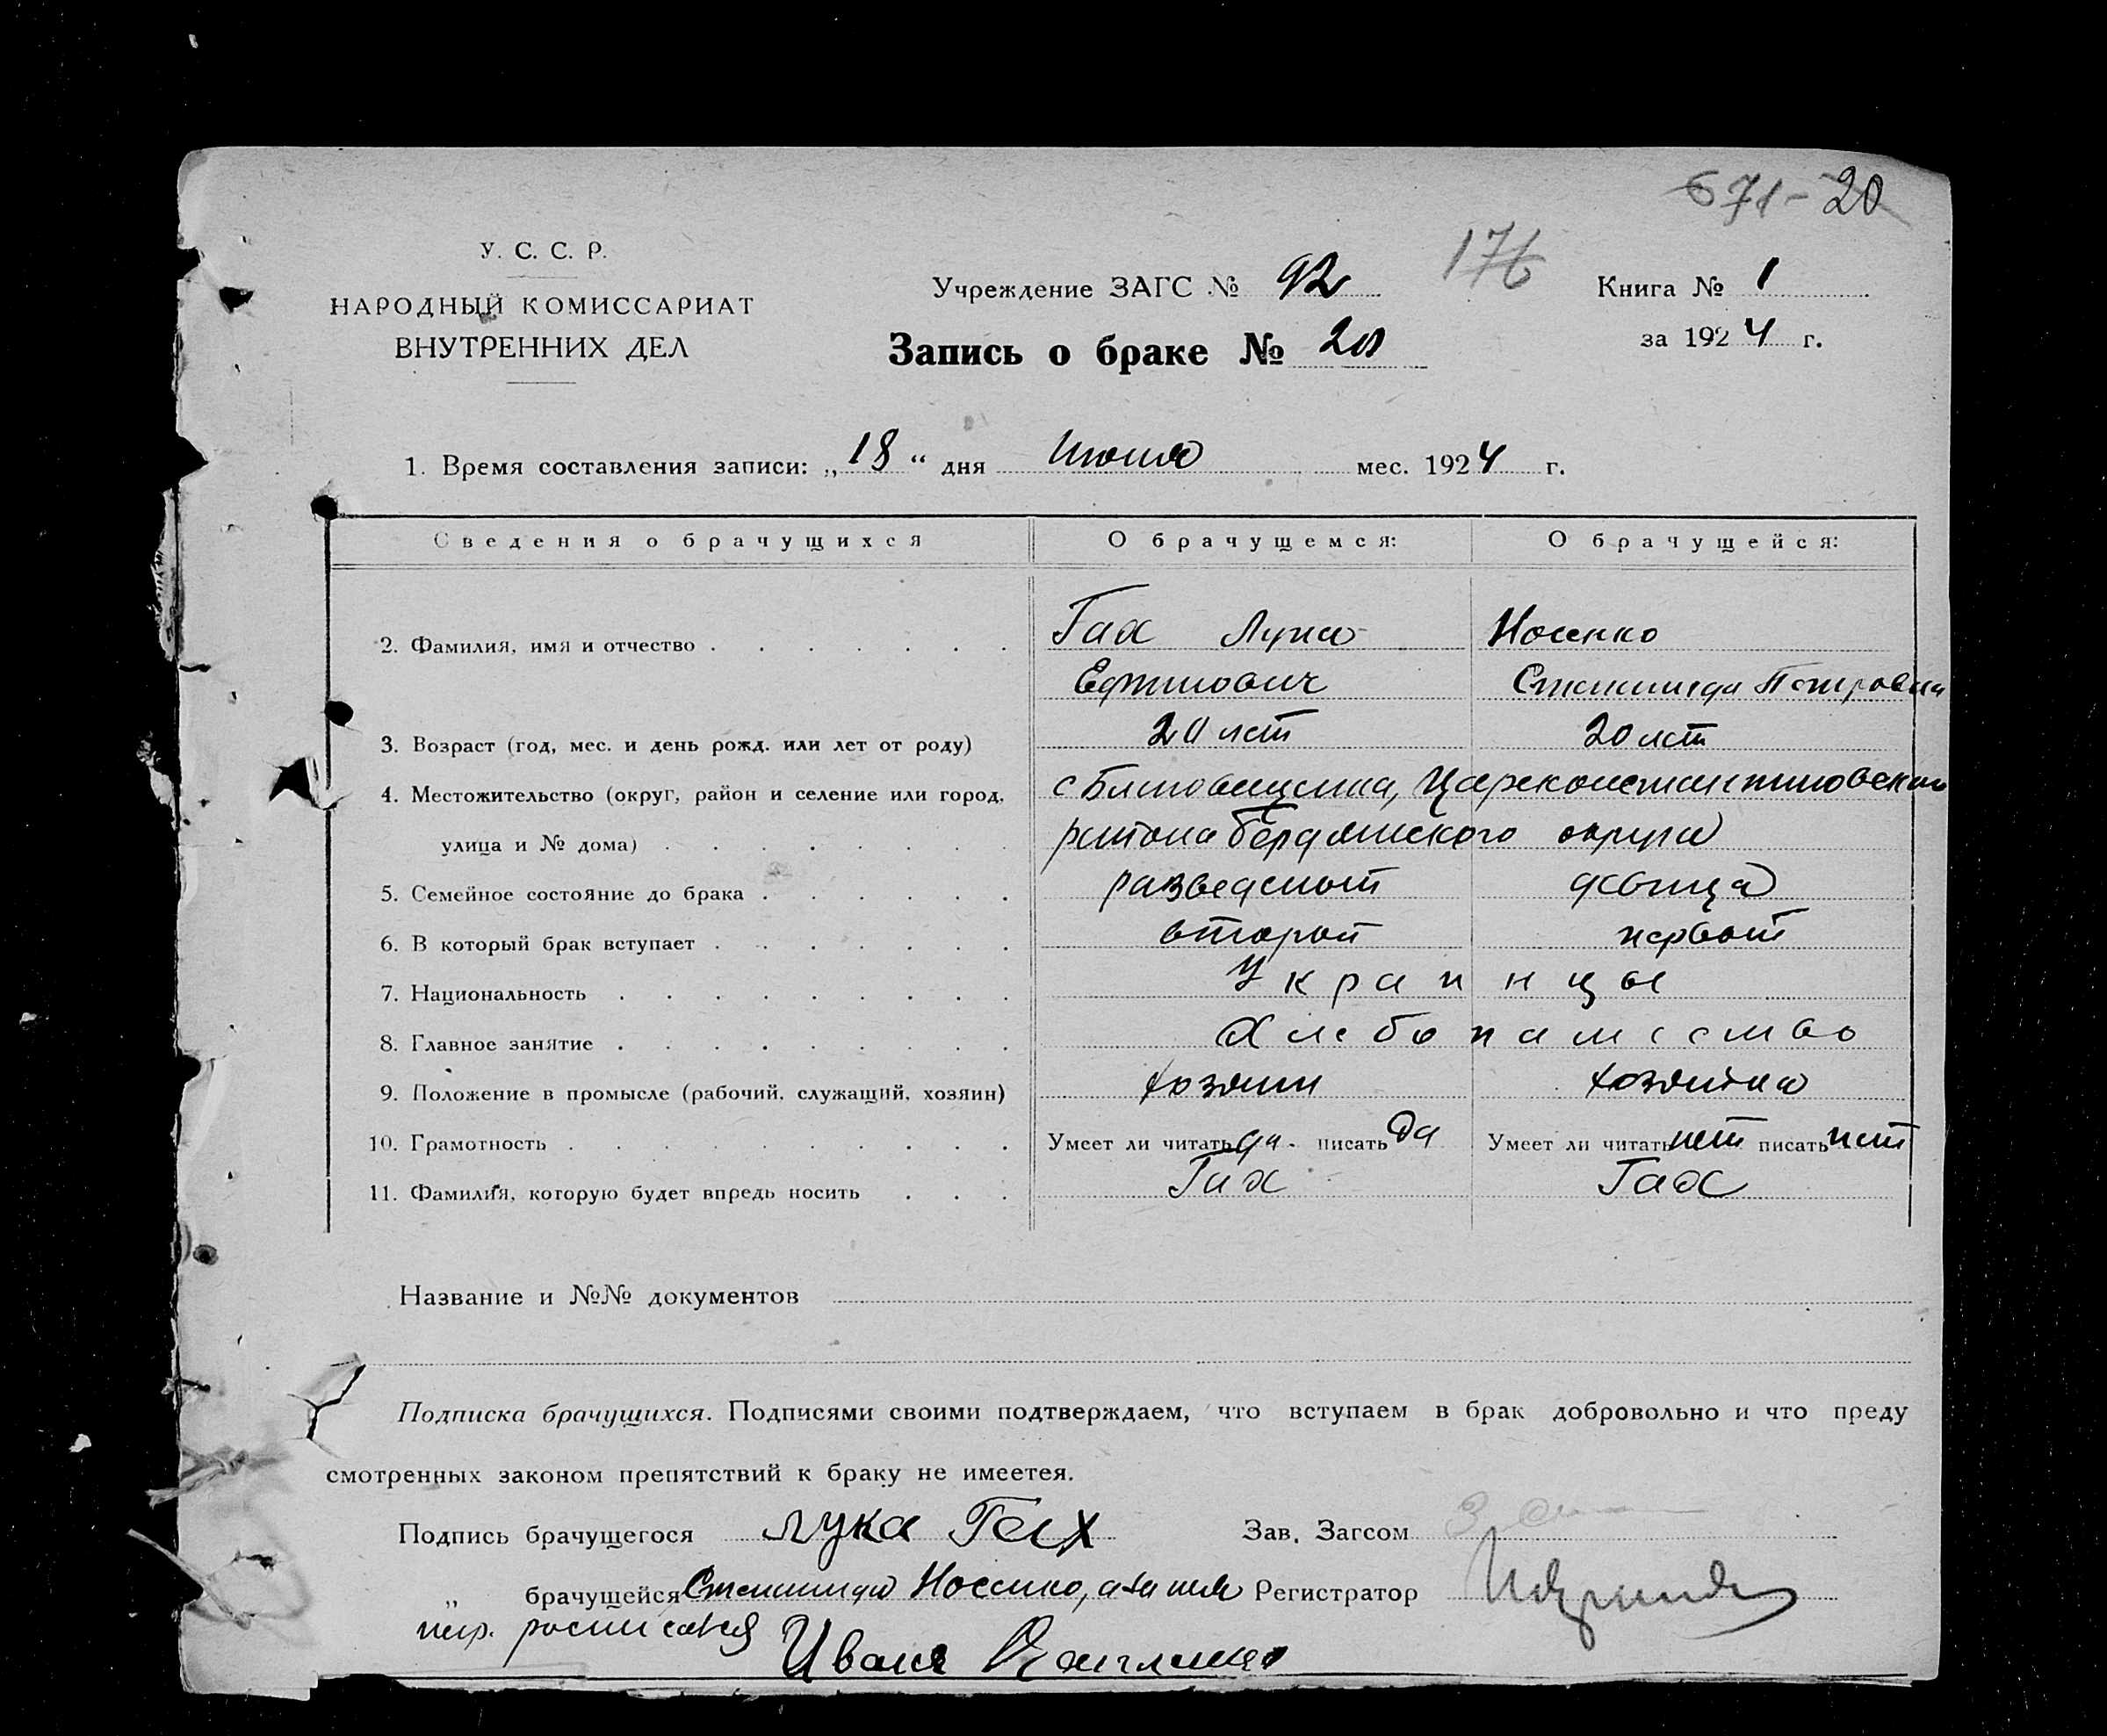 671-20
У. С. С. Р.
НАРОДНЫЙ КОМИССАРИАТ
ВНУТРЕННИХ ДЕЛ
Учреждение ЗАГС № 92
176
Книга № 1
Запись о браке № 20
за 1924 г.
1. Время составления записи: „18“ дня мес. 1924 г.
Сведения о брачущихся О брачущемся: О брачущейся:
2. Фамилия, имя и отчество Гах Лука Носенко
Ефимович Степанида Петровна
3. Возраст (год, мес. и день рожд. или лет от роду) 20 лет 20 лет
4. Местожительство (округ, район и селение или город, с Благовещенка, Цареконстантиновского
улица и № дома) района Бердянского округа
5. Семейное состояние до брака разведеный девица
6. В который брак вступает второй первый
7. Национальность Украинцы
8. Главное занятие Хлебопашество
9. Положение в промысле (рабочий, служащий, хозяин) хозяин хозяйка
10. Грамотность Умеет ли читать да. писать да Умеет ли читать нет писать нет
11. Фамилия, которую будет впредь носить Гах Гах
Название и №№ документов
Подписка брачущихся. Подписями своими подтверждаем, что вступаем в брак добровольно и что преду
смотренных законом препятствий к браку не имеетея.
Подпись брачущегося лука Гах Зав. Загсом
„ брачущейся Степанида Носенко, а за нея Регистратор
негр. росписався
Иван